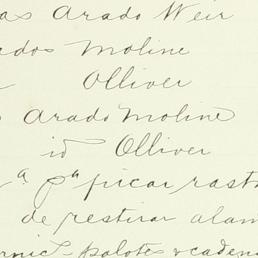 as Arado Weir
ados Moline
Olliver
s Arado Moline
id Olliver
a pa picar rast
de restirar alam
palotes y caden